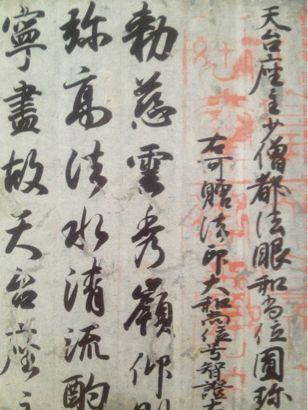 天台座主少僧都法眼和尚位圓珎
右可贈法印大和尚位号智證大
勅慈雲秀嶺仰
弥高法水清流酌
寧盡故天台座主